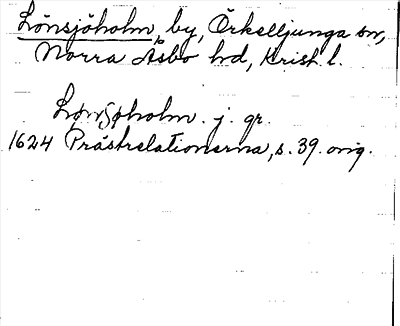 Lönsjöholm, by, Örkelljunga sn,
Norra Åsbo hd, Krist. l.
Lønsøholm. j. gr.
1624 Prästrelationerna, s. 39. orig.